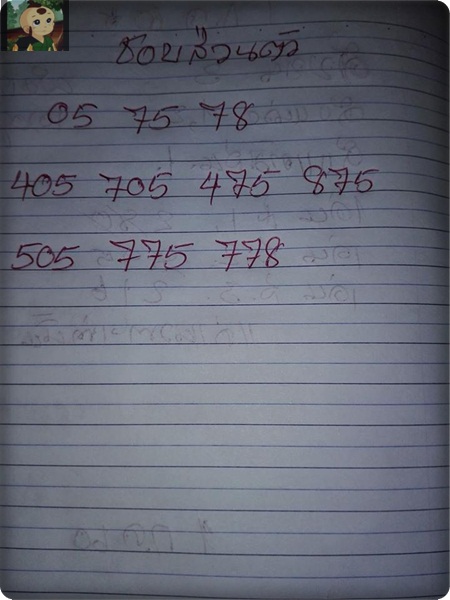 ช้อยส่วนตัว
05 75 78
405 705 475 875
505 775 778